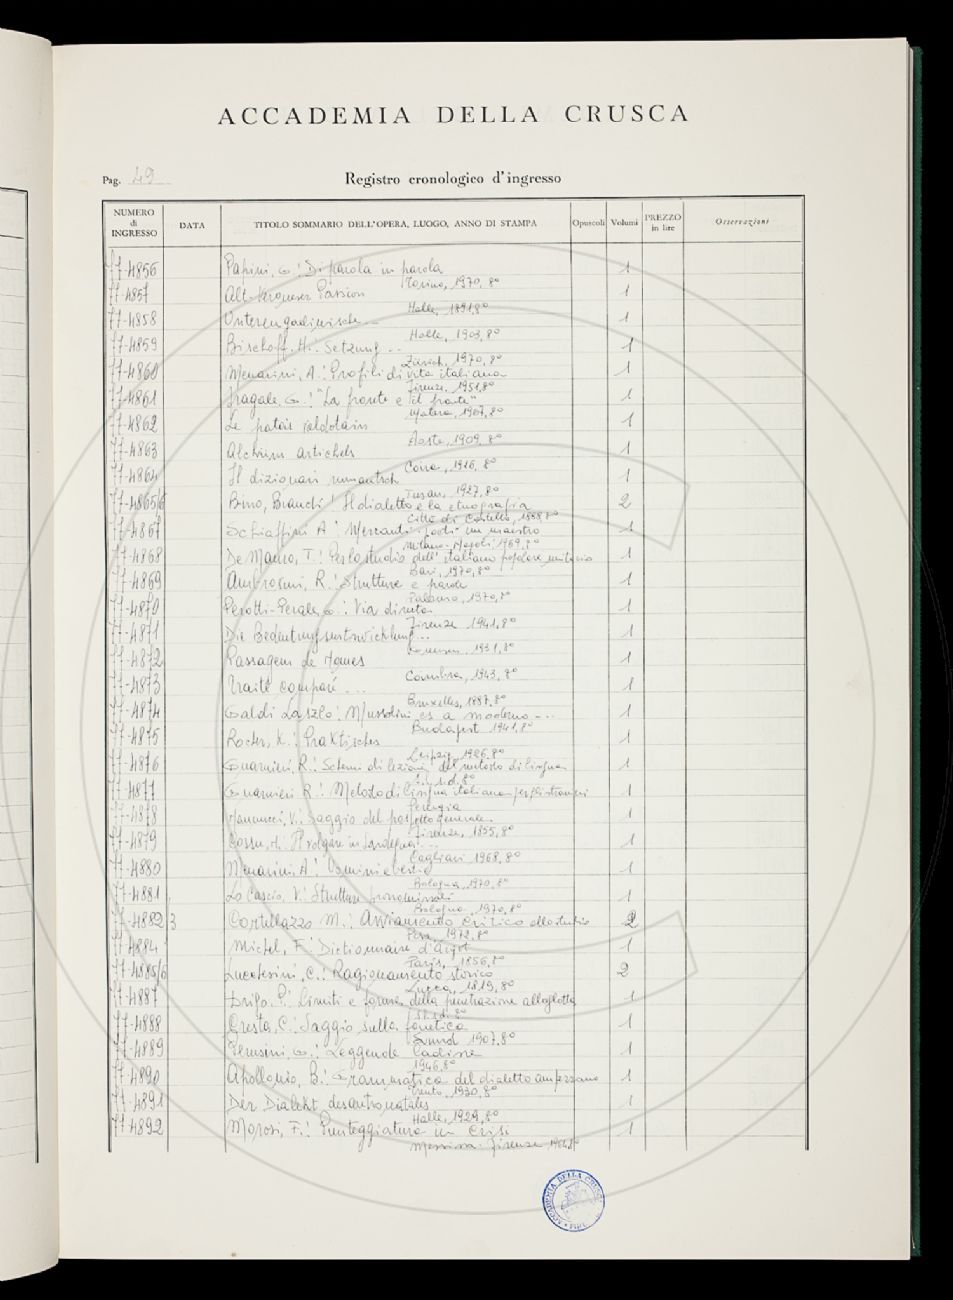 ACCADEMIA DELLA CRUSCA
Pag. 49
Registro cronologico d'ingresso
NUMERO di INGRESSO DATA TITOLO SOMMARIO DELL'OPERA, LUOGO, ANNO DI STAMPA Opuscoli Volumi PREZZO in lire Osservazioni
77-4856 Papini, G.: Di parola in parola 1
Torino, 1970, 8°
77-4857 Passion 1
Halle, 1891, 8°
77-4858 Unterengadinische 1
Halle, 1903, 8°
77-4859 Bischoff, H.: Setzung .. 1
Zürich, 1970, 8°
77-4860 Menarini, A.: Profili di vita italiana 1
Firenze, 1951, 8°
77-4861 Fragale G.: "La fronte e il fronte" 1
Matera, 1967, 8°
77-4862 Le patois valdôtain 1
Aosta, 1909, 8°
77-4863 artichels 1
Coira, 1916, 8°
77-4864 Il dizionari rumantsch 1
Tusan, 1927, 8°
77-4865/6 Bino, Bianchi: Il dialetto e la etnografia 2
Città di Castello, 1888, 8°
77-4867 Schiaffini A.: Mercanti poeti un maestro 1
Milano-Napoli, 1969, 8°
77-4868 De Mauro, T.: Per lo studio dell'italiano popolare unitario 1
Bari, 1970, 8°
77-4869 Ambrosini, R.: Strutture e parole 1
Palermo, 1970, 8°
77-4870 Perotti-Perale, G.: Via diretta 1
Firenze 1941, 8°
77-4871 Die Bedeutungsentwicklung... 1
1931, 8°
77-4872 Passagem de 1
Coimbra, 1943, 8°
77-4873 Traité comparé ... 1
Bruxelles, 1887, 8°
77-4874 Galdi Laszlo: Mussolini es a moderno ... 1
Budapest 1941, 8°
77-4875 K.: Praktisches 1
Leipzig, 1926, 8°
77-4876 Guarnieri, R.: Schemi di lezioni del metodo di lingua 1
s.d. 8°
77-4877 Guarnieri R.: Metodo di lingua italiana per gli stranieri 1
Perugia
77-4878 Nannucci, V.: Saggio del prospetto generale 1
Firenze, 1855, 8°
77-4879 Cossu, A.: Il volgare in Sardegna ... 1
Cagliari 1968, 8°
77-4880 Menarini, A.: Uomini e bestie 1
Bologna, 1970, 8°
77-4881 Lo Cascio, V.: Strutture pronominali 1
Bologna, 1970, 8°
77-4882/3 Cortellazzo M.: Avviamento critico allo studio 2
Pisa, 1972, 8°
77-4884 Michel, F.: Dictionnaire d'argot 1
Paris, 1856, 8°
77-4885/6 Lucchesini, C.: Ragionamento storico 2
Lucca, 1819, 8°
77-4887 P.: Limiti e forme della penetrazione alloglotta 1
s.d. 8°
77-4888 Cresta, C.: Saggio sulla fonetica 1
1907, 8°
77-4889 Perusini, G.: Leggende ladine 1
1946, 8°
77-4890 Apollonio, B.: Grammatica del dialetto ampezzano 1
Trento, 1930, 8°
77-4891 Der Dialekt des 1
Halle, 1929, 8°
77-4892 Morosi, F.: Punteggiatura in crisi 1
Messina-Firenze 8°
ACCADEMIA DELLA CRUSCA